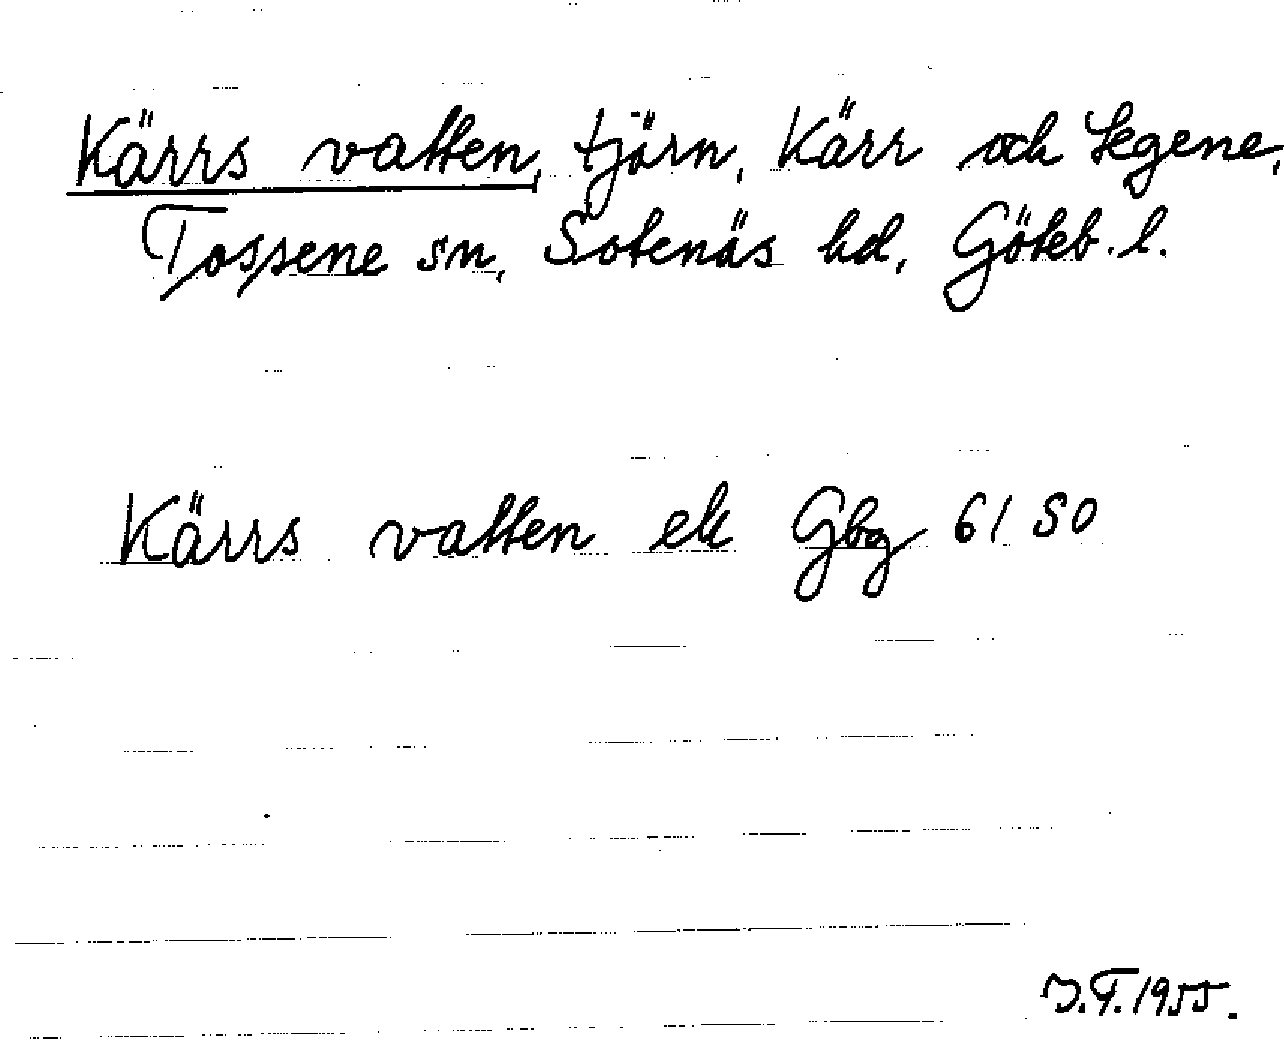 Kärrs vatten, tjörn, Kärr och Legene,
Tossene sn, Sotenäs hd, Göteb. l.
Kärrs vatten ek Gbg 61 SO
J.F. 1955.